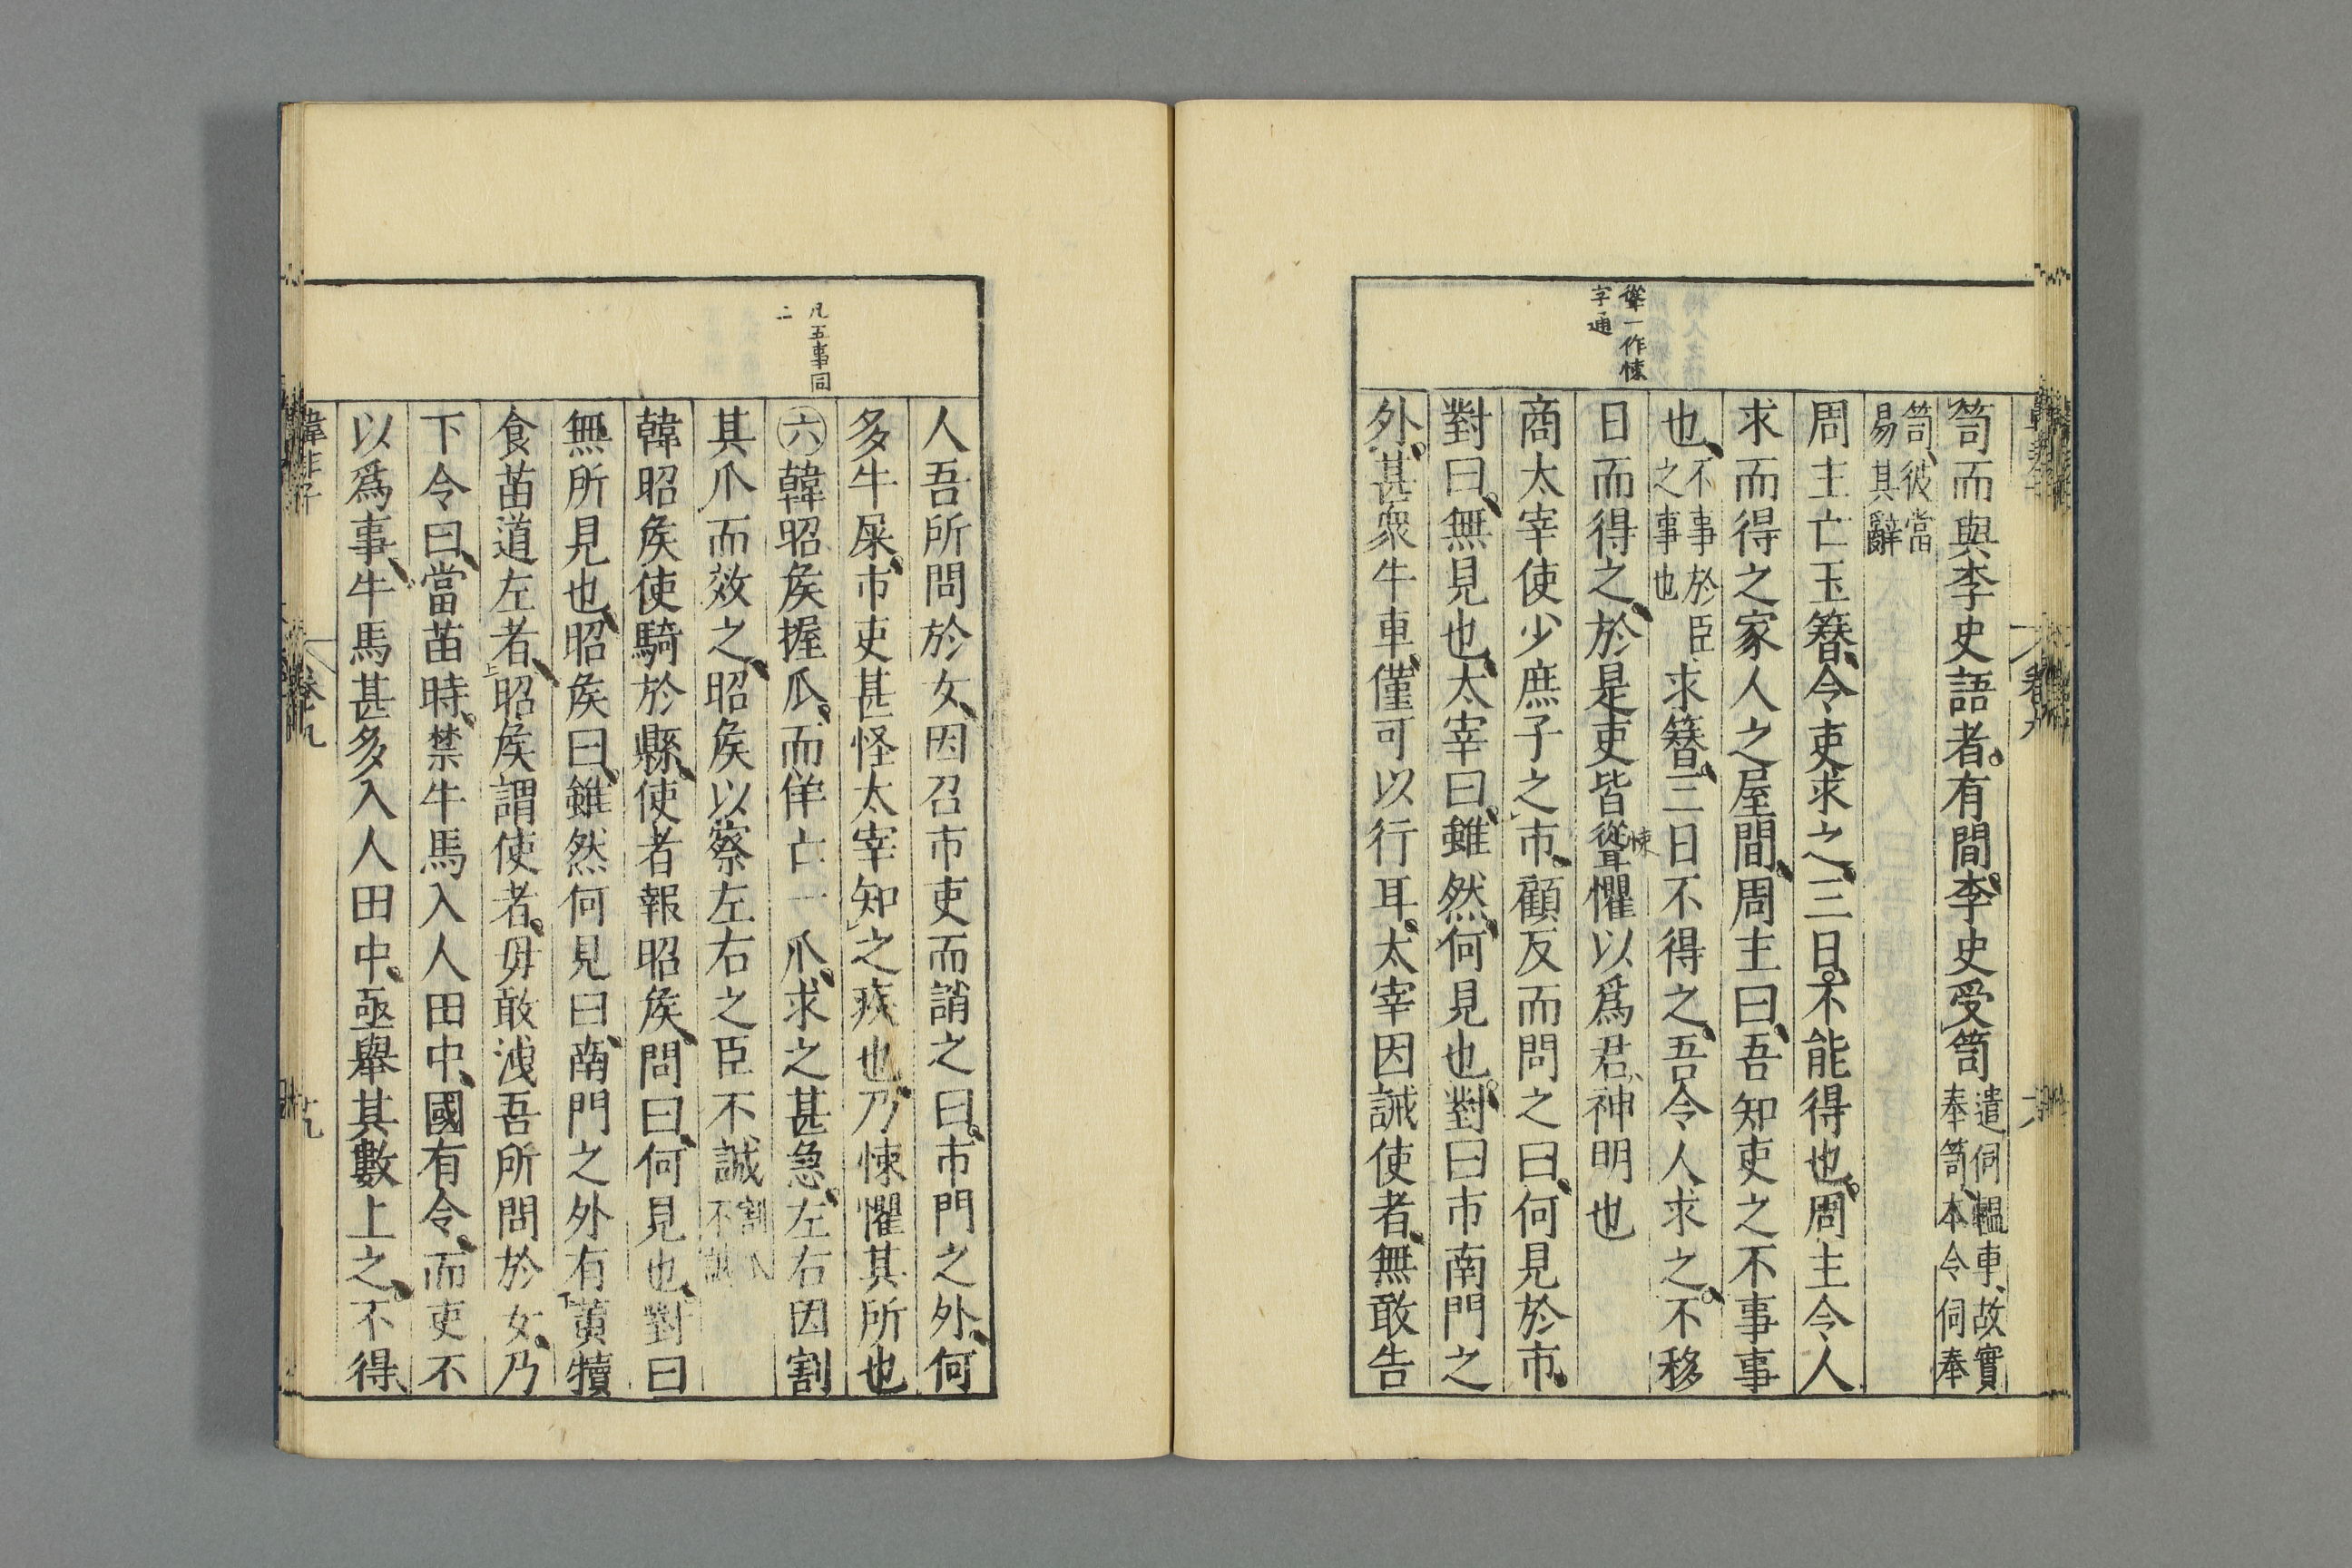 聳一作悚
字通
笥而與李史語者有間李史受笥遣伺轀車故實奉笥本令伺奉
笥彼當易其辭
周主亡玉簪令吏求之三日不能得也周主令人
求而得之家人之屋間周主曰吾知吏之不事事
也不事於臣之事也求簪三日不得之吾令人求之不移
日而得之於是吏皆聳悚懼以爲君神明也
商太宰使少庶子之市顧反而問之曰何見於市
對曰無見也太宰曰雖然何見也對曰市南門之
外甚衆牛車僅可以行耳太宰因誡使者無敢告
凡五事同
二
人吾所問於女因召市吏而誚之曰市門之外何
多牛屎市吏甚怪太宰知之疾也乃悚懼其所也
㊅韓昭矦握瓜而佯亡一爪求之甚急左右因割
其爪而效之昭矦以察左右之臣不誠割爪不誠
韓昭矦使騎於縣使者報昭矦問曰何見也對曰
無所見也昭矦曰雖然何見曰南門之外有黄犢
食苗道左者昭矦謂使者毋敢洩吾所問於女乃
下令曰當苗時禁牛馬入人田中國有令而吏不
以爲事牛馬甚多入人田中亟舉其數上之不得
韓非子 卷九